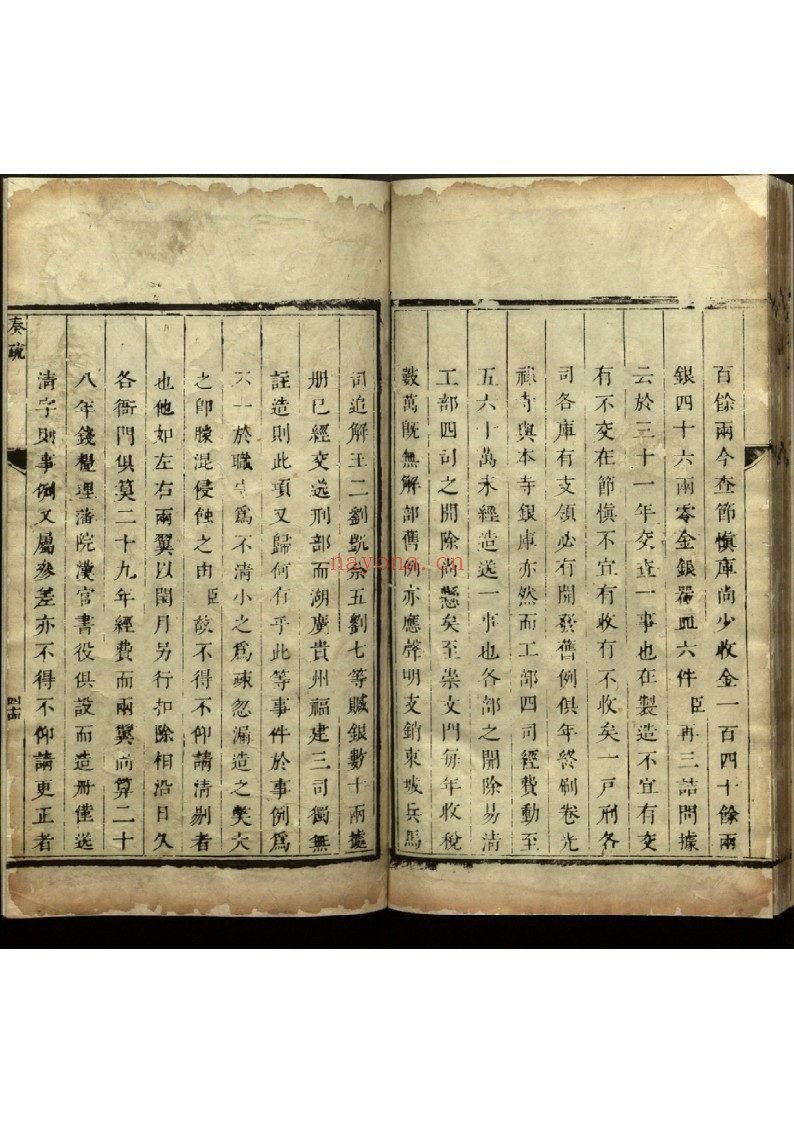 百餘兩今查節慎庫尚少收金一百四十餘兩
銀四十六兩零金銀器皿六件臣再三詰問據
云於三十一年交查一事也在製造不宜有交
有不交在節慎不宜有收有不收矣一戶刑各
司各庫有支領必有開發舊例俱年終刷卷光
祿寺與本寺銀庫亦然而工部四司經費動至
五六十萬未經造送一事也各部之開除易清
工部四司之開除尚懸矣至崇文門每年收稅
數萬既無解部舊例亦應聲明支銷東城兵馬
司追解王二劉凱宗五劉七等贓銀數十兩據
册已經交送刑部而湖廣貴州福建三司獨無
註造則此項又歸何有乎此等事件於事例為
不一於職守為不清小之為疎忽漏造之獘大
之卽朦混侵蝕之由臣故不得不仰請清剔者
也他如左右兩翼以閏月另行扣除相沿日久
各衙門俱算二十九年經費而兩翼尚算二十
八年錢糧理藩院漢官書役俱設而造册僅送
清字則事例又屬參差亦不得不仰請更正者
奏疏
nayona.cn